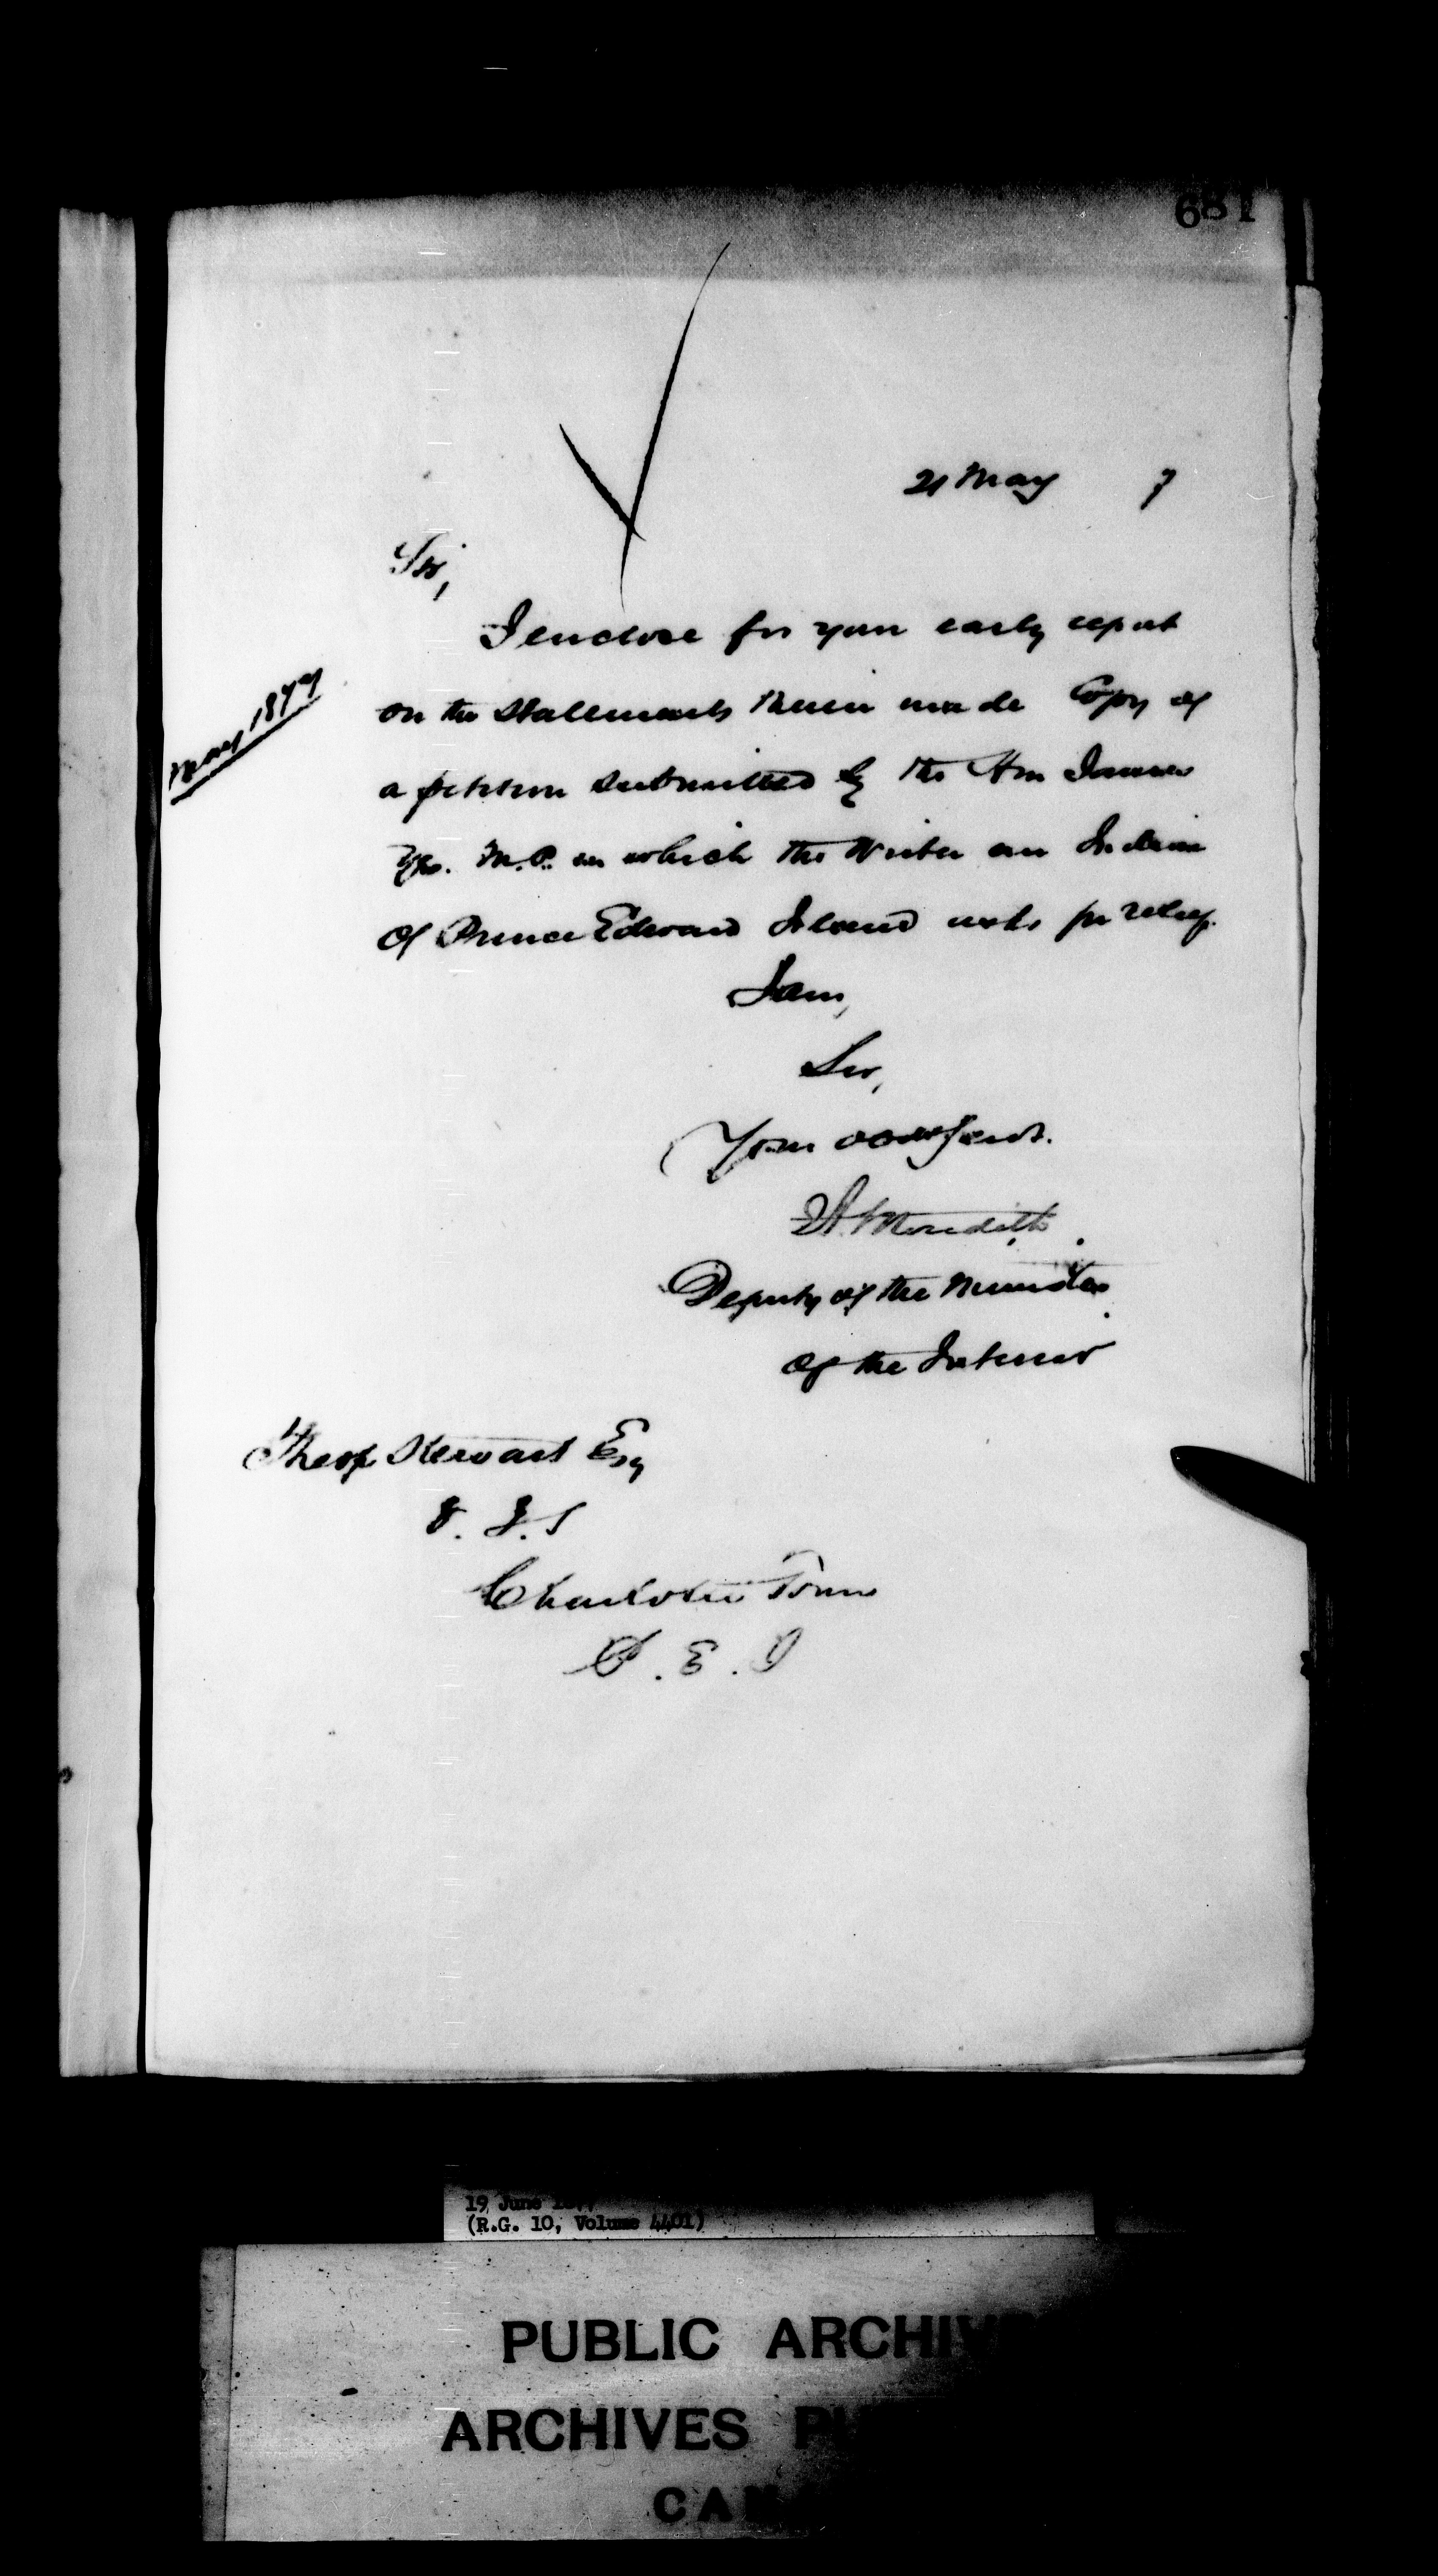 681
21 May 7
Sir,
I enclose for your early report
May 1877
on the statements therein made Copy of
a petition submitted by the Hon James
Yeo. M.P. in which the Writer an Indian
of Prince Edward Island asks for relief.
I am,
Sir,
Your obedt Servt.
Meredith
Deputy of the Minister
of the Interior
Theop Stewart Esq
Charlotte Town
P. E. I
19 June
(R.G. 10, Volume 4401)
PUBLIC ARCHIV
ARCHIVES PU
CAN